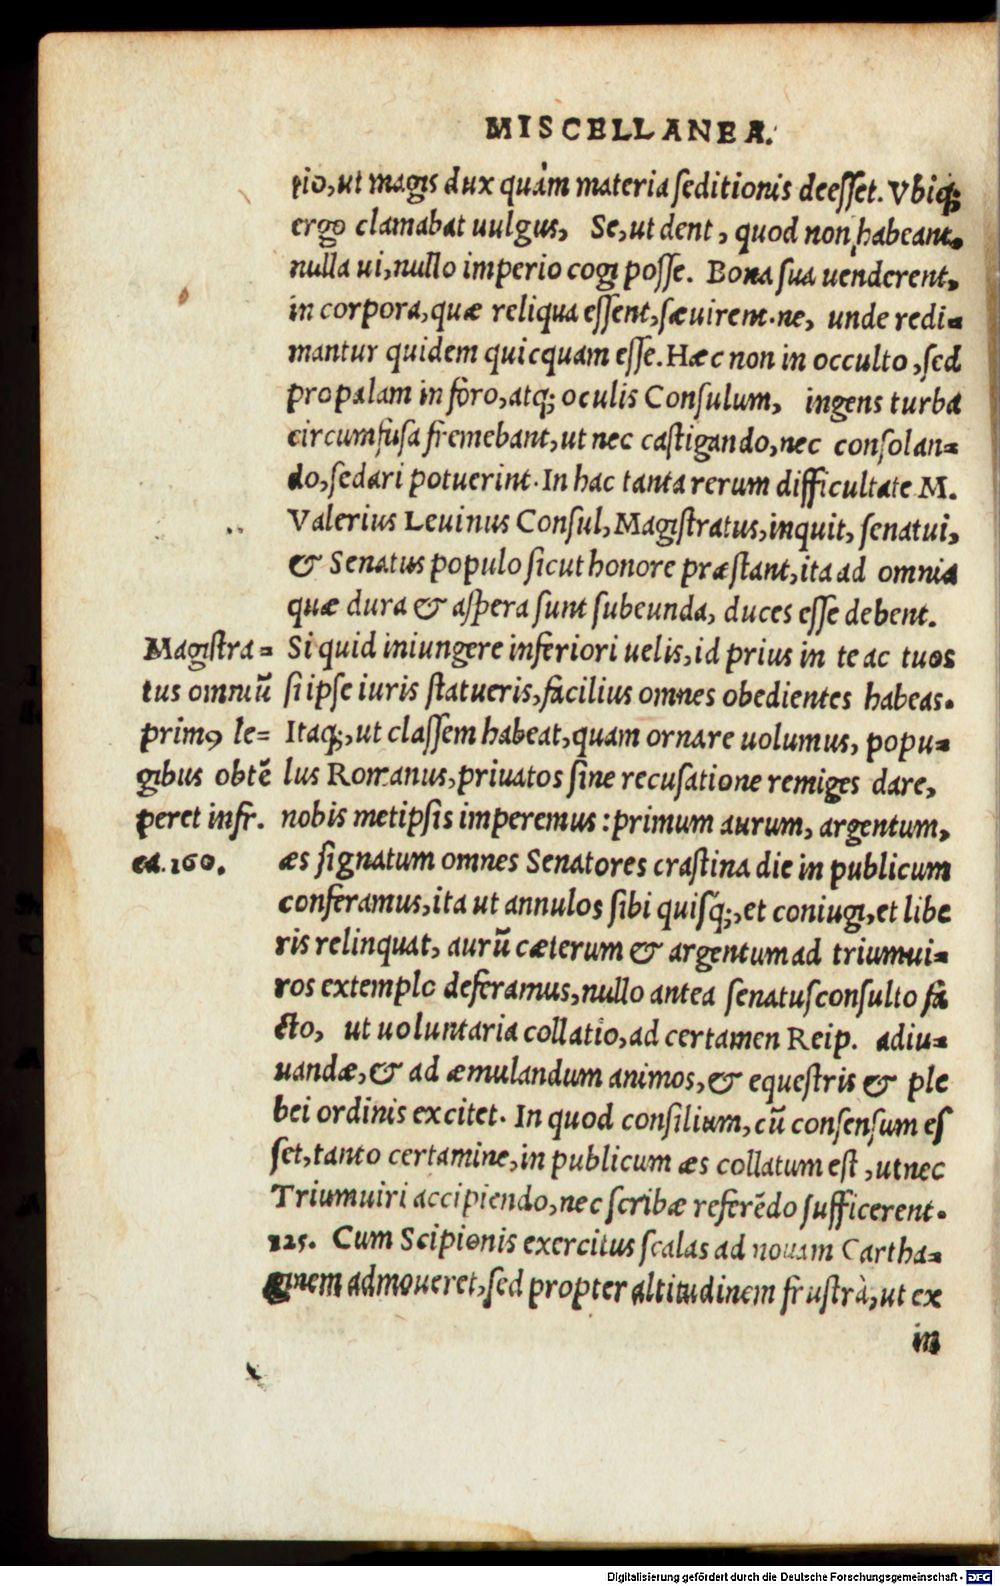 MISCELLANEA.
tio, ut magis dux quàm materia seditionis deesset. Vbiq;
ergo clamabat uulgus, Se, ut dent, quod non habeant,
nulla ui, nullo imperio cogi posse. Bona sua uenderent,
in corpora, quæ reliqua essent, sæuirent. ne, unde redi=
mantur quidem quicquam esse. Hæc non in occulto, sed
propalam in foro, atq; oculis Consulum, ingens turba
circumfusa fremebant, ut nec castigando, nec consolan=
do, sedari potuerint. In hac tanta rerum difficultate M.
Valerius Leuinus Consul, Magistratus, inquit, senatui,
& Senatus populo sicut honore præstant, ita ad omnia
quæ dura & aspera sunt subeunda, duces esse debent.
Magistra=
tus omniũ
primꝰ le=
gibus obtẽ
peret infr.
ea. 160.
Si quid iniungere inferiori uelis, id prius in te ac tuos
si ipse iuris statueris, facilius omnes obedientes habeas.
Itaq;, ut classem habeat, quam ornare uolumus, popu=
lus Romanus, priuatos sine recusatione remiges dare,
nobis metipsis imperemus: primum aurum, argentum,
æs signatum omnes Senatores crastina die in publicum
conferamus, ita ut annulos sibi quisq;, et coniugi, et libe
ris relinquat, aurũ cæterum & argentum ad triumui=
ros extemplo deferamus, nullo antea senatusconsulto fa
cto, ut uoluntaria collatio, ad certamen Reip. adiu=
uandæ, & ad æmulandum animos, & equestris & ple
bei ordinis excitet. In quod consilium, cũ consensum es
set, tanto certamine, in publicum æs collatum est, ut nec
Triumuiri accipiendo, nec scribæ referẽdo sufficerent.
125. Cum Scipionis exercitus scalas ad nouam Cartha=
ginem admoueret, sed propter altitudinem frustrà, ut ex
in
Digitalisierung gefördert durch die Deutsche Forschungsgemeinschaft - DFG